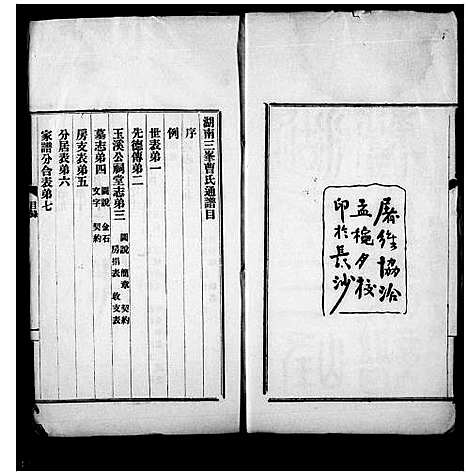 屠維協洽
孟梔夕校
印於長沙
湖南三峯曹氏通譜目
序
例
世表第一
先德傳第二
玉溪公祠堂志第三 圖說 簡章 契約 房捐表 收支表
墓志第四 圖說 金石 文字 契約
房支表第五
分居表第六
家譜分合表第七
目錄